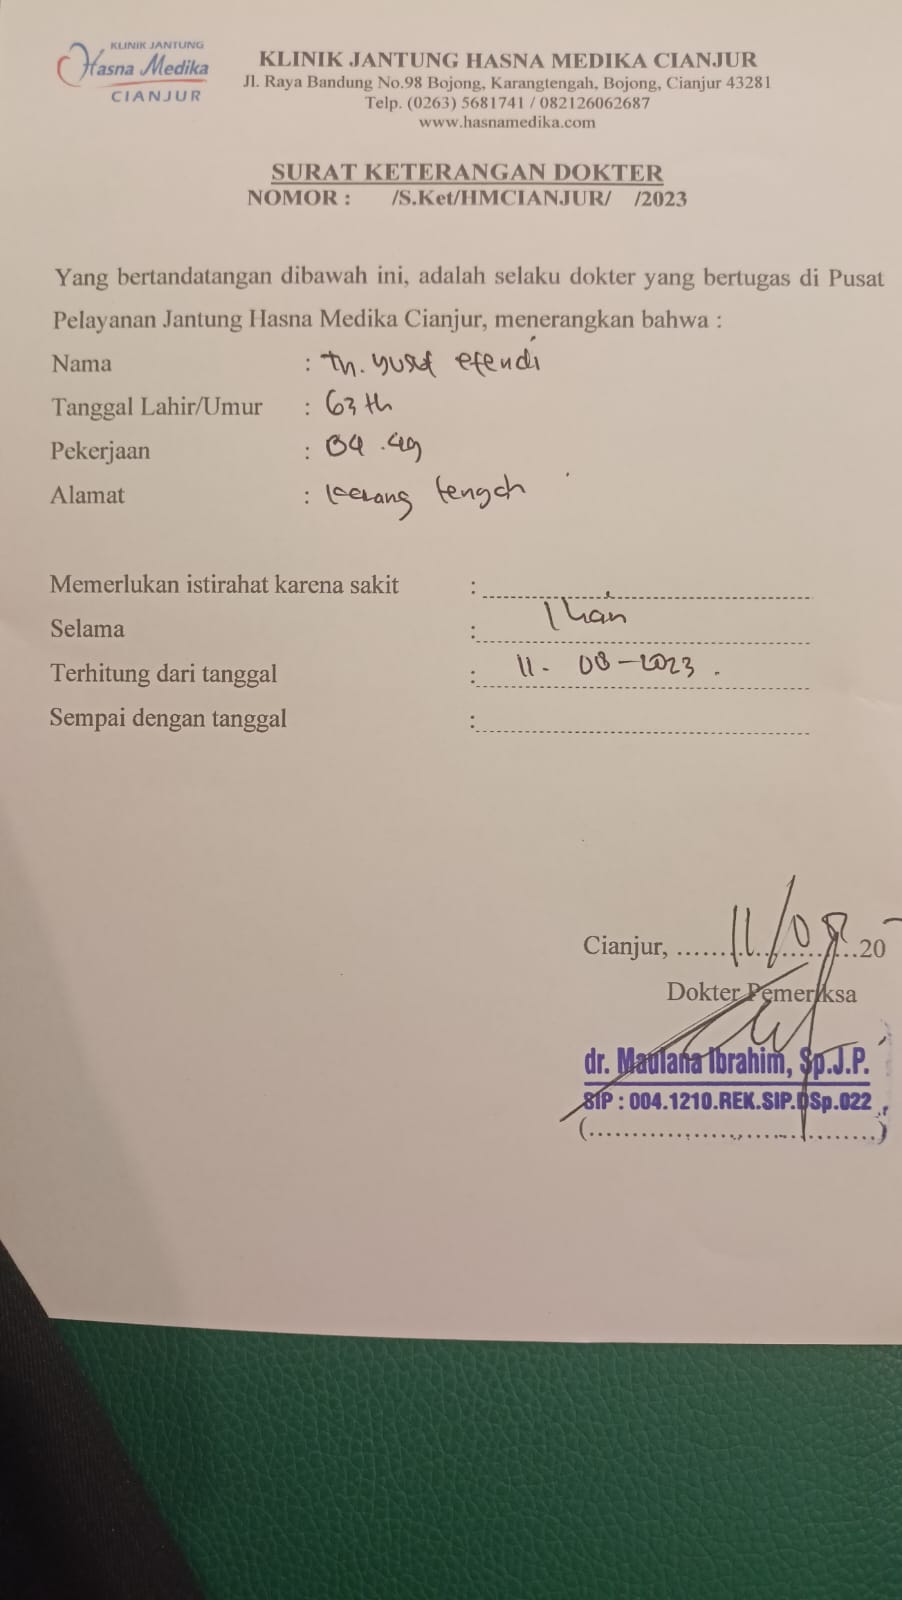 KLINIK JANTUNG
Hasna Medika
CIANJUR
KLINIK JANTUNG HASNA MEDIKA CIANJUR
Jl. Raya Bandung No.98 Bojong, Karangtengah, Bojong, Cianjur 43281
Telp. (0263) 5681741 / 082126062687
www.hasnamedika.com
SURAT KETERANGAN DOKTER
NOMOR : /S.Ket/HMCIANJUR/ /2023
Yang bertandatangan dibawah ini, adalah selaku dokter yang bertugas di Pusat
Pelayanan Jantung Hasna Medika Cianjur, menerangkan bahwa :
Nama : Tn. Yusuf efendi
Tanggal Lahir/Umur : 63 th
Pekerjaan :
Alamat : karang tengah
Memerlukan istirahat karena sakit :
Selama : 1 hari
Terhitung dari tanggal : 11 - 08 - 2023 .
Sempai dengan tanggal :
Cianjur, ...... 11/08 ...20
Dokter Pemeriksa
dr. Maulana Ibrahim, Sp.J.P.
SIP : 004.1210.REK.SIP.DSp.022
(....................................)